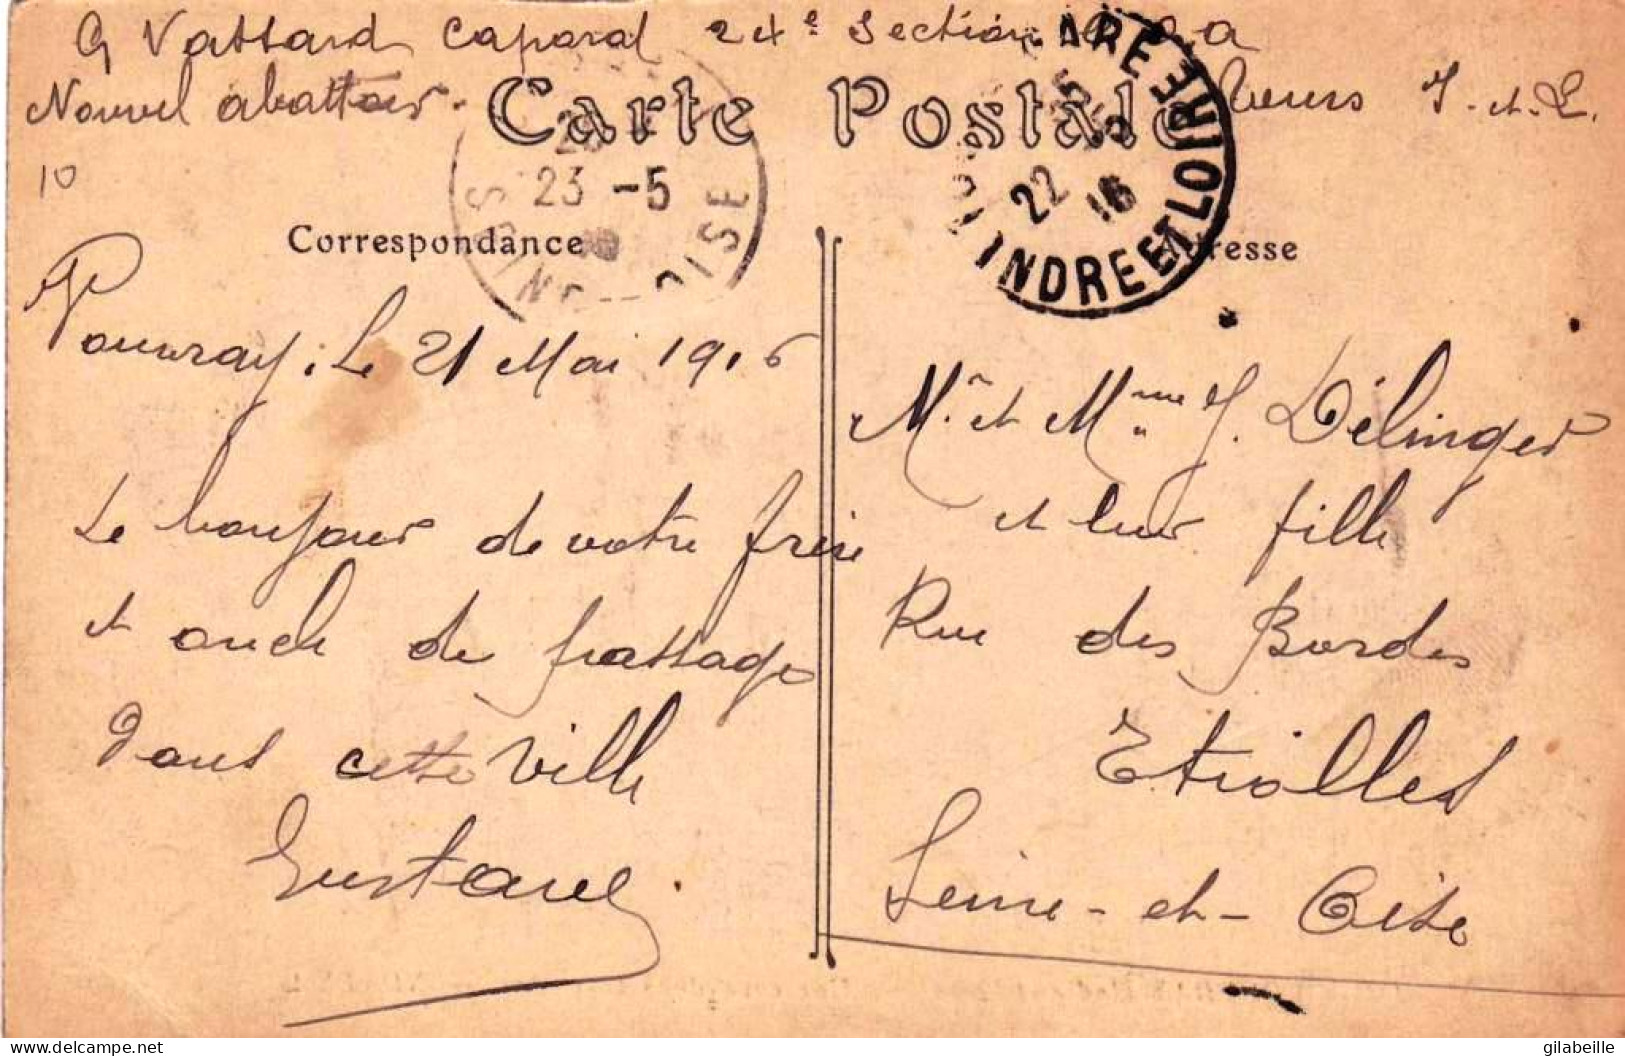 G Vassard Caporal 24e Section
Nouvel abattoir. Tours I-et-L.
10
Carte Postale
23 -5
OISE
22 16
INDRE ET LOIRE
Correspondance
Adresse
Vouvray, Le 21 Mai 1916
Le bonjour de votre frère
et oncle de passage
Dans cette ville
Gustave.
Mr et Mme J. Délinger
et leur fille
Rue des Bordes
Etiolles
Seine-et-Oise
gilabeille